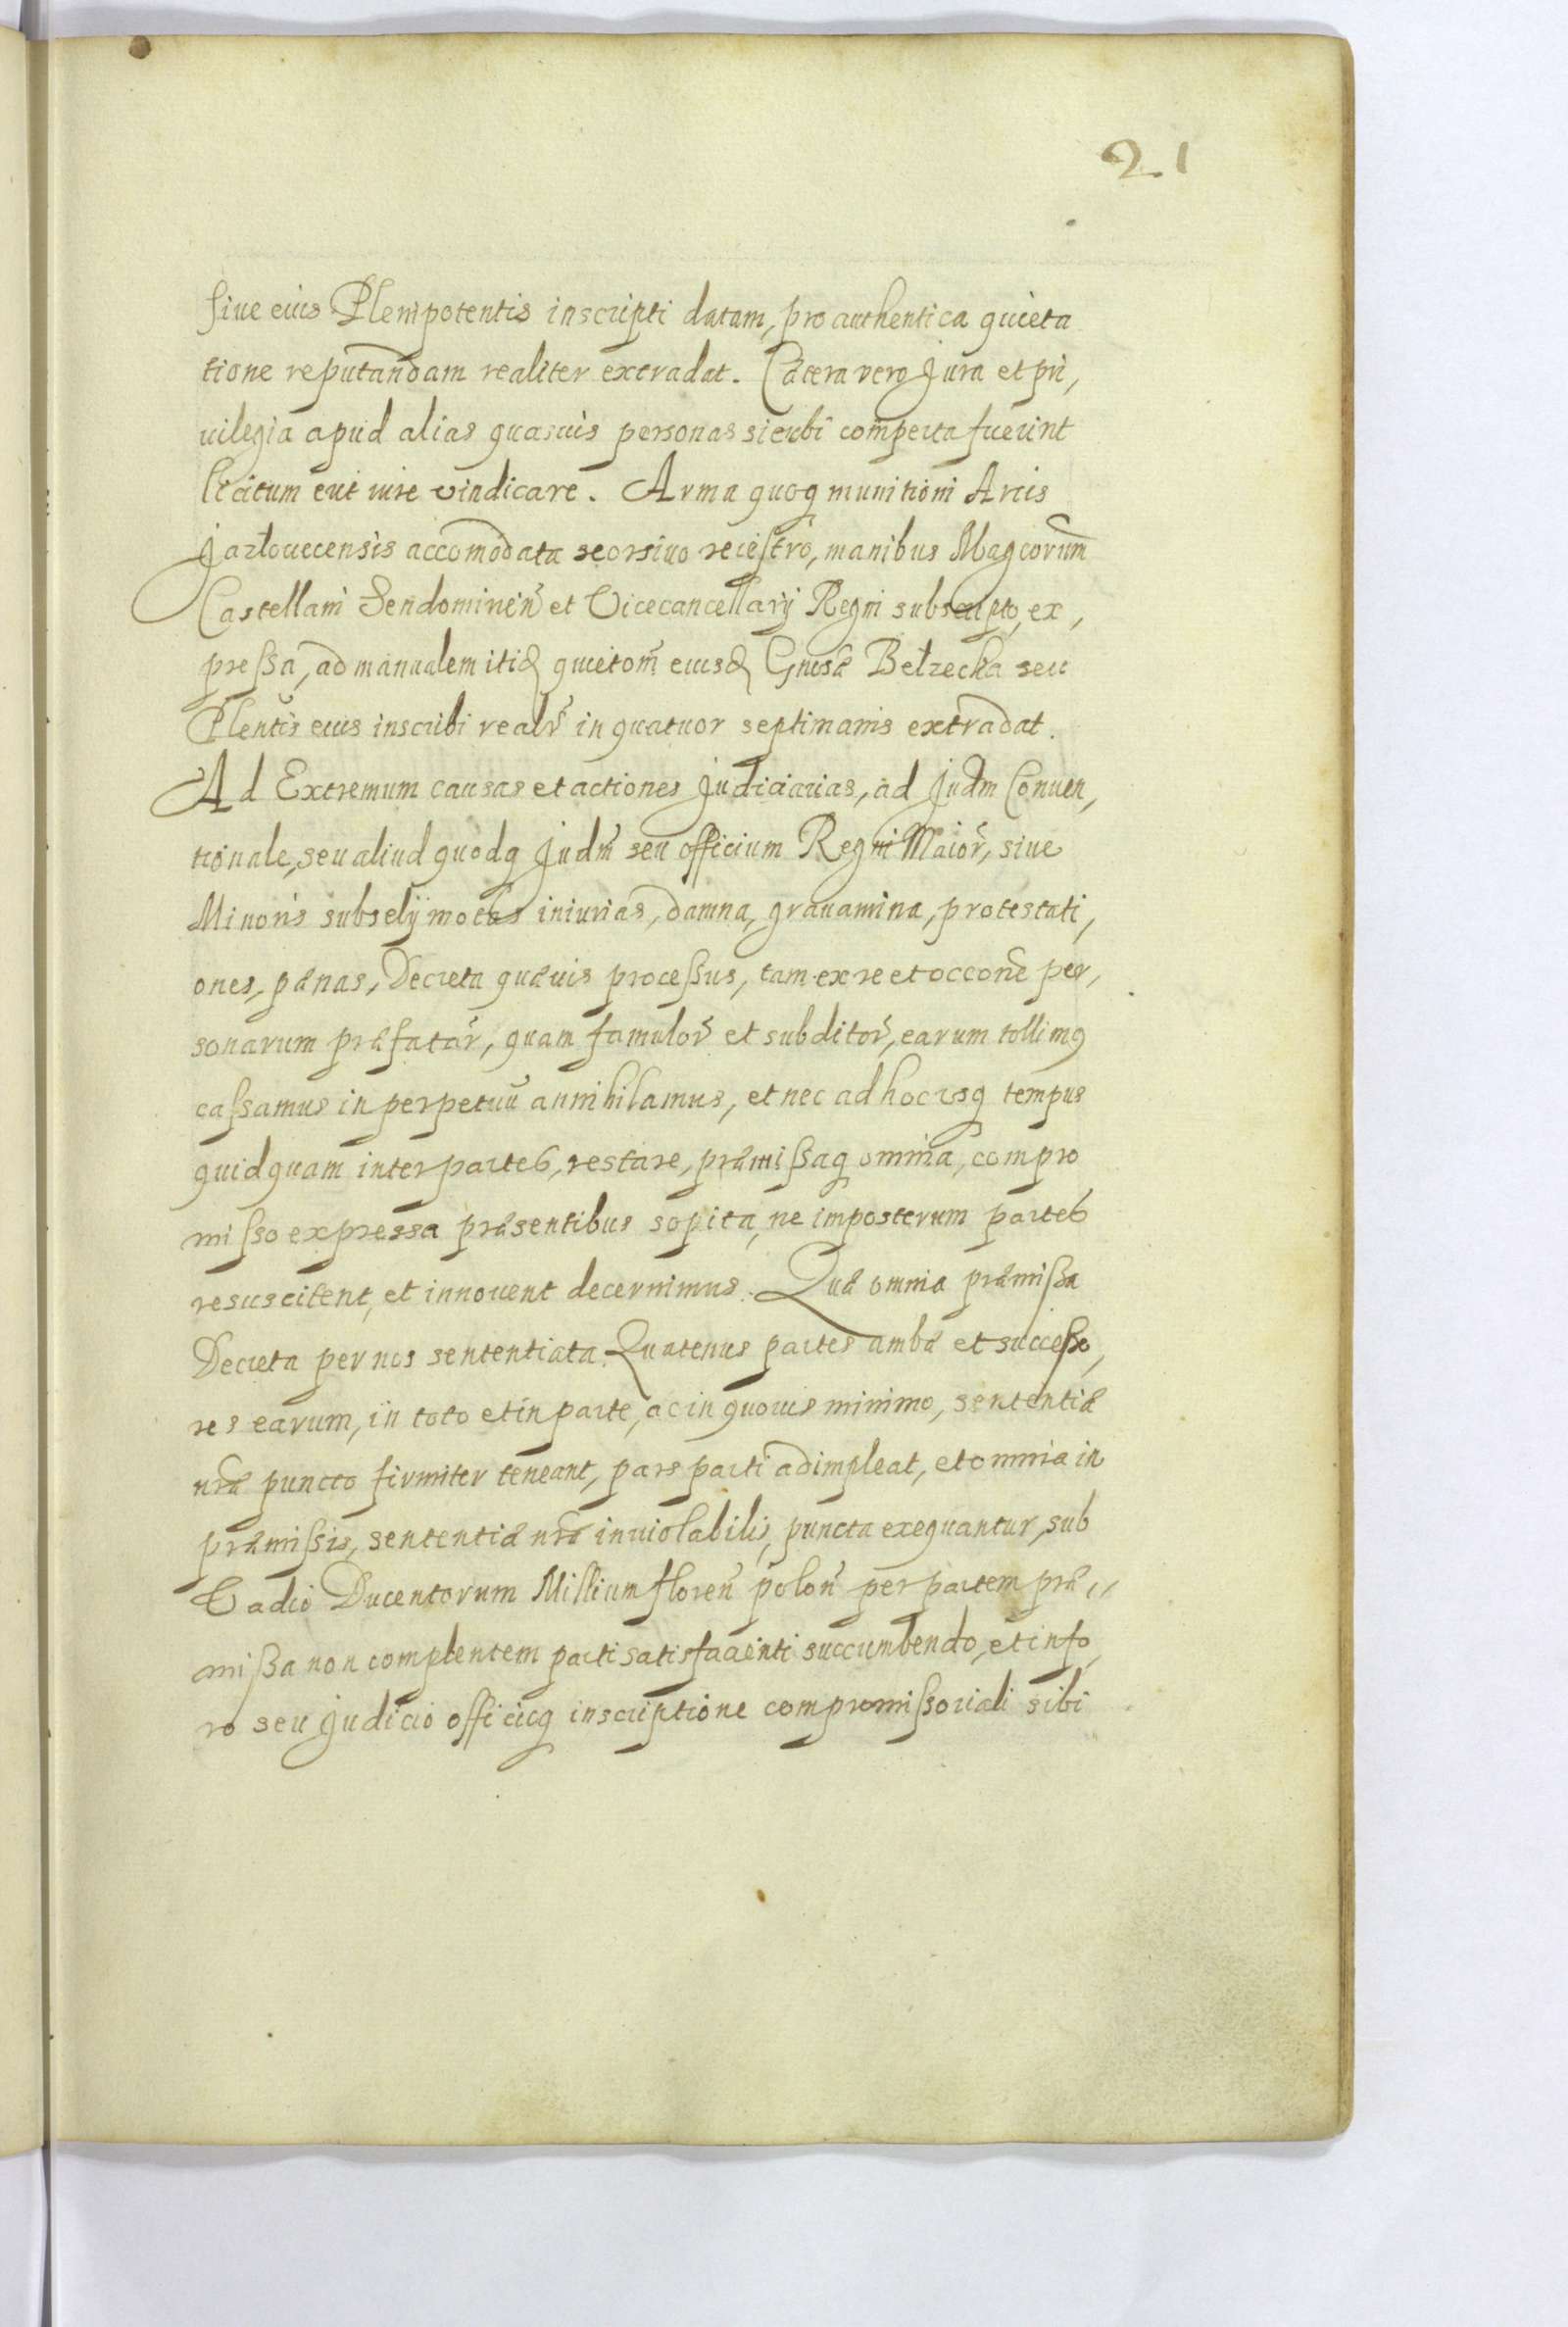 21
siue eius Plenipotentis inscripti datam, pro authentica quieta
tione reputandam realiter extradat. Cætera vero Jura et pri,
uilegia apud alias quasuis personas sicubi comperta fuerint
licitum erit iure vindicare. Arma quoq munitioni Arcis
Jazlouecensis accomodata seorsiuo recestro, manibus Magcorum
Castellani Sendominen̄ et Vicecancellarÿ Regni subscripto, ex,
preßa, ad manualem itid quietom̄ eiusd Gnosæ Belzecka seu
Plentis eius inscribi realr̄ in quatuor septimanis extradat.
Ad Extremum causas et actiones Judiciarias, ad Judm Conuen,
tionale, seu aliud quodq Judm̄ seu officium Regni Maior̄, siue
Minoris subselÿ motas iniurias, damna, grauamina, protestati,
ones, pænas, Decreta quæuis proceßus, tam ex re et occone per,
sonarum præfatar̄, quam famulor̄ et subditor̄, earum tollimq
caßamus in perpetuū annihilamus, et nec ad hoc vsq tempus
quidquam inter partes, restare, præmißaq omnia, compro
mißo expressa præsentibus sopita, ne imposterum partes
resuscitent, et innouent decernimus. Quæ omnia præmißa
Decreta per nos sententiata. Quatenus partes ambæ et succeßo,
res earum, in toto et in parte, ac in quouis minimo, sententiæ
nræ puncto firmiter teneant, pars parti adimpleat, et omnia in
præmißis, sententiæ nræ inuiolabilis, puncta exequantur, sub
Vadio Ducentorum Millium floren̄ polon̄ per partem præ,,
mißa non complentem parti satisfacienti succumbendo, et in fo,
ro seu Judicio officioq inscriptione compromißoriali sibi